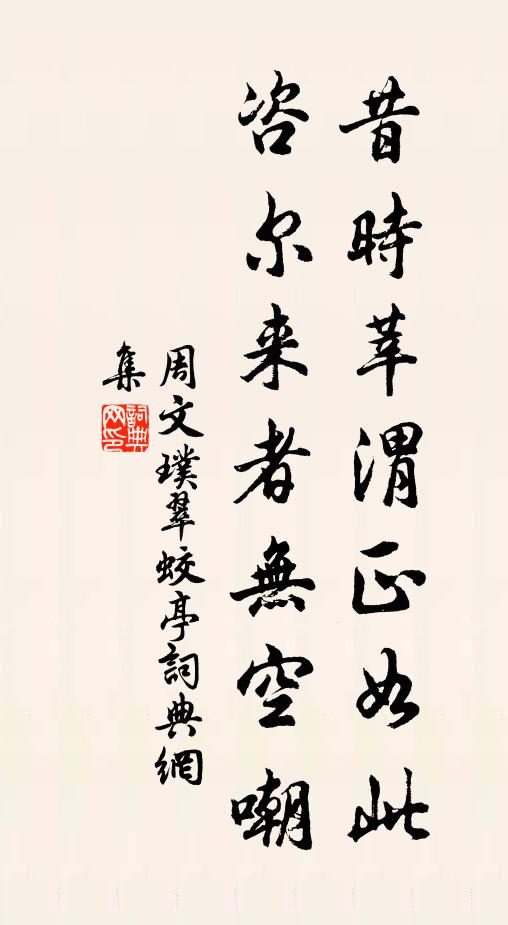 昔時莘渭正如此
咨尔来者無空嘲
周文璞翠蛟亭詞典網
集
詞典網印